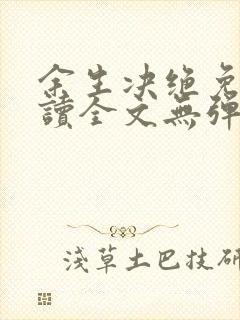 余生决绝免
讀全文無彈
淺草土巴技研